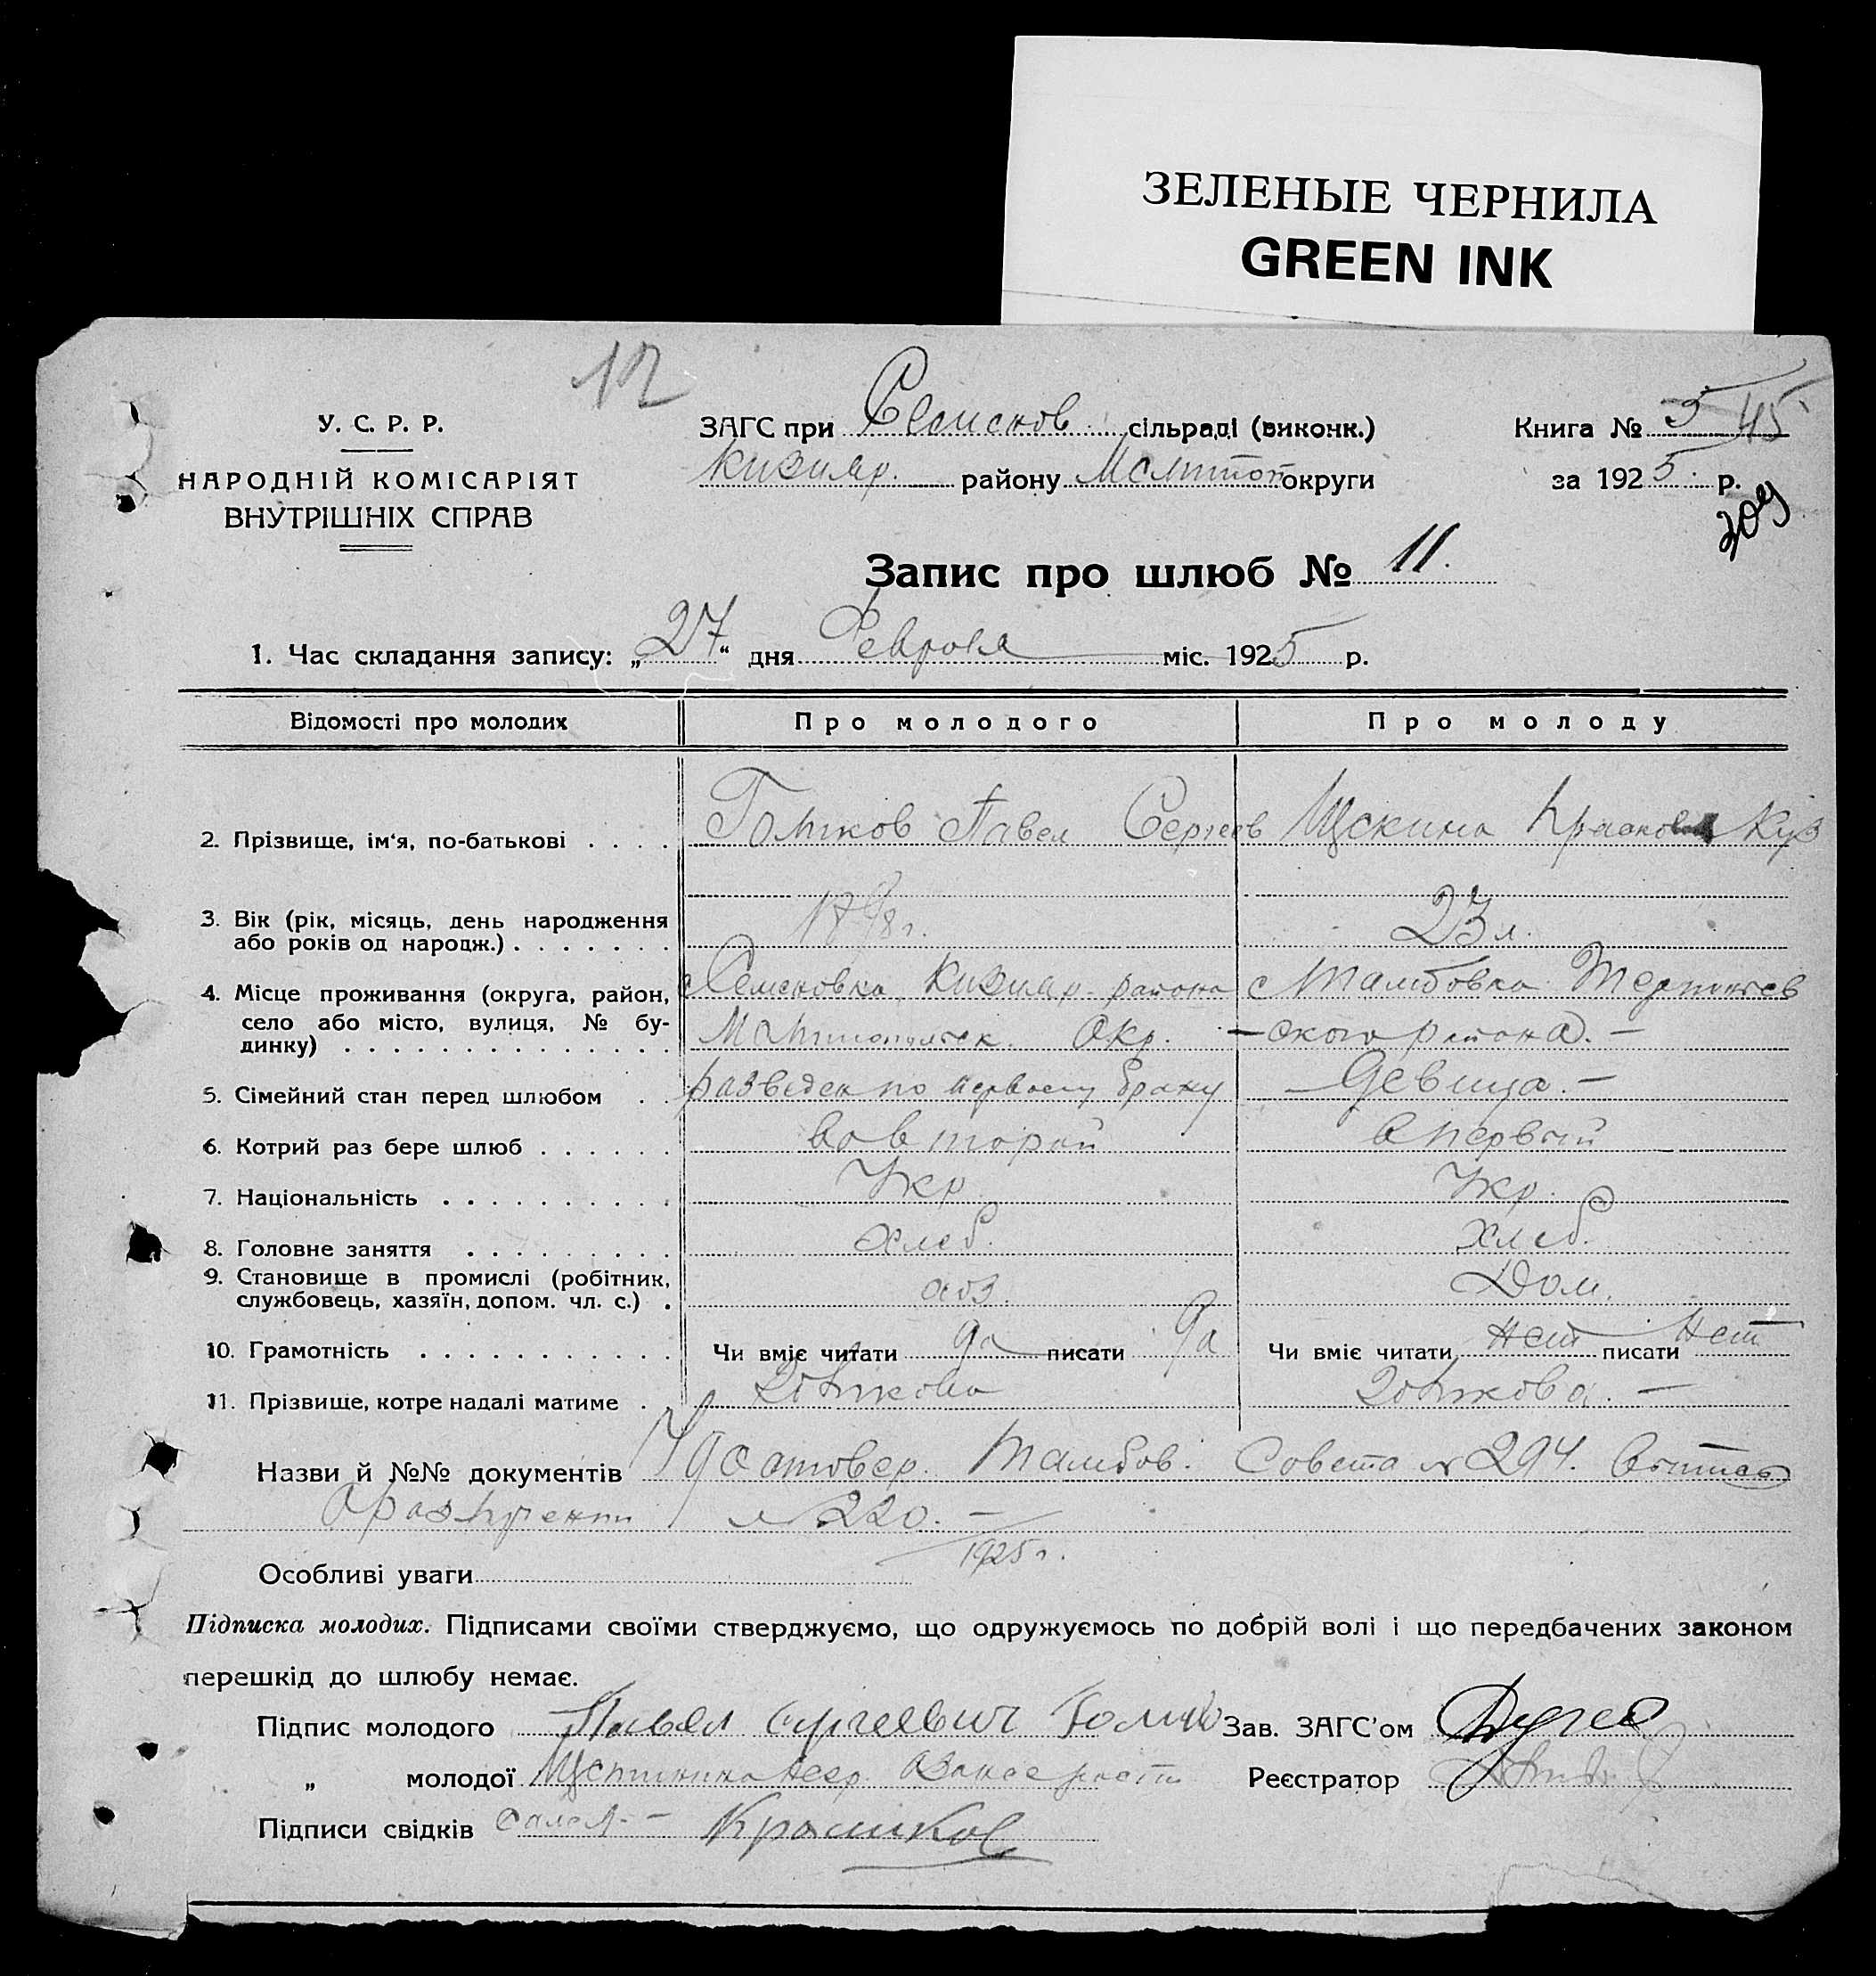 ЗЕЛЕНЫЕ ЧЕРНИЛА
GREEN INK
12
У. С. Р. Р.
НАРОДНІЙ КОМІСАРІЯТ
ВНУТРІШНІХ СПРАВ
ЗАГС при Семенов. сільраді (виконк.)
Кизияр. району Мелитоп округи
Книга № 5 45
за 1925. р.
209
Запис про шлюб № 11.
1. Час складання запису: „27“ дня Февраля міс. 1925 р.
Відомості про молодих Про молодого Про молоду
2. Прізвище, ім‘я, по-батькові . . . . Павел Сергеев
3. Вік (рік, місяць, день народження 23 л.
або років од народж.) . . . . . . .
4. Місце проживання (округа, район, с Семеновка Кизияр. района с Тамбовка Терпеньев
село або місто, вулиця, № бу- Мелитопольск. Окр. —ского района. —
динку) . . . . . . . . . . . . . .
5. Сімейний стан перед шлюбом . . разведен по первому браку — Девица. —
6. Котрий раз бере шлюб . . . . . . во второй в первый
7. Національність . . . . . . . . . . Укр Укр.
8. Головне заняття . . . . . . . . . Хлеб. Хлеб.
9. Становище в промислі (робітник, Дом.
службовець, хазяїн, допом. чл. с.) .
10. Грамотність . . . . . . . . . . . Чи вміє читати да писати да Чи вміє читати нет писати нет
11. Прізвище, котре надалі матиме .
Назви й №№ документів Удостовер. Тамбов. Совета № 294.
№ 220. —
1925 г.
Особливі уваги
Підписка молодих. Підписами своїми стверджуємо, що одружуємось по добрій волі і що передбачених законом
перешкід до шлюбу немає.
Підпис молодого Павел Сергеевич Зав. ЗАГС'ом
„ молодої Реєстратор
Підписи свідків